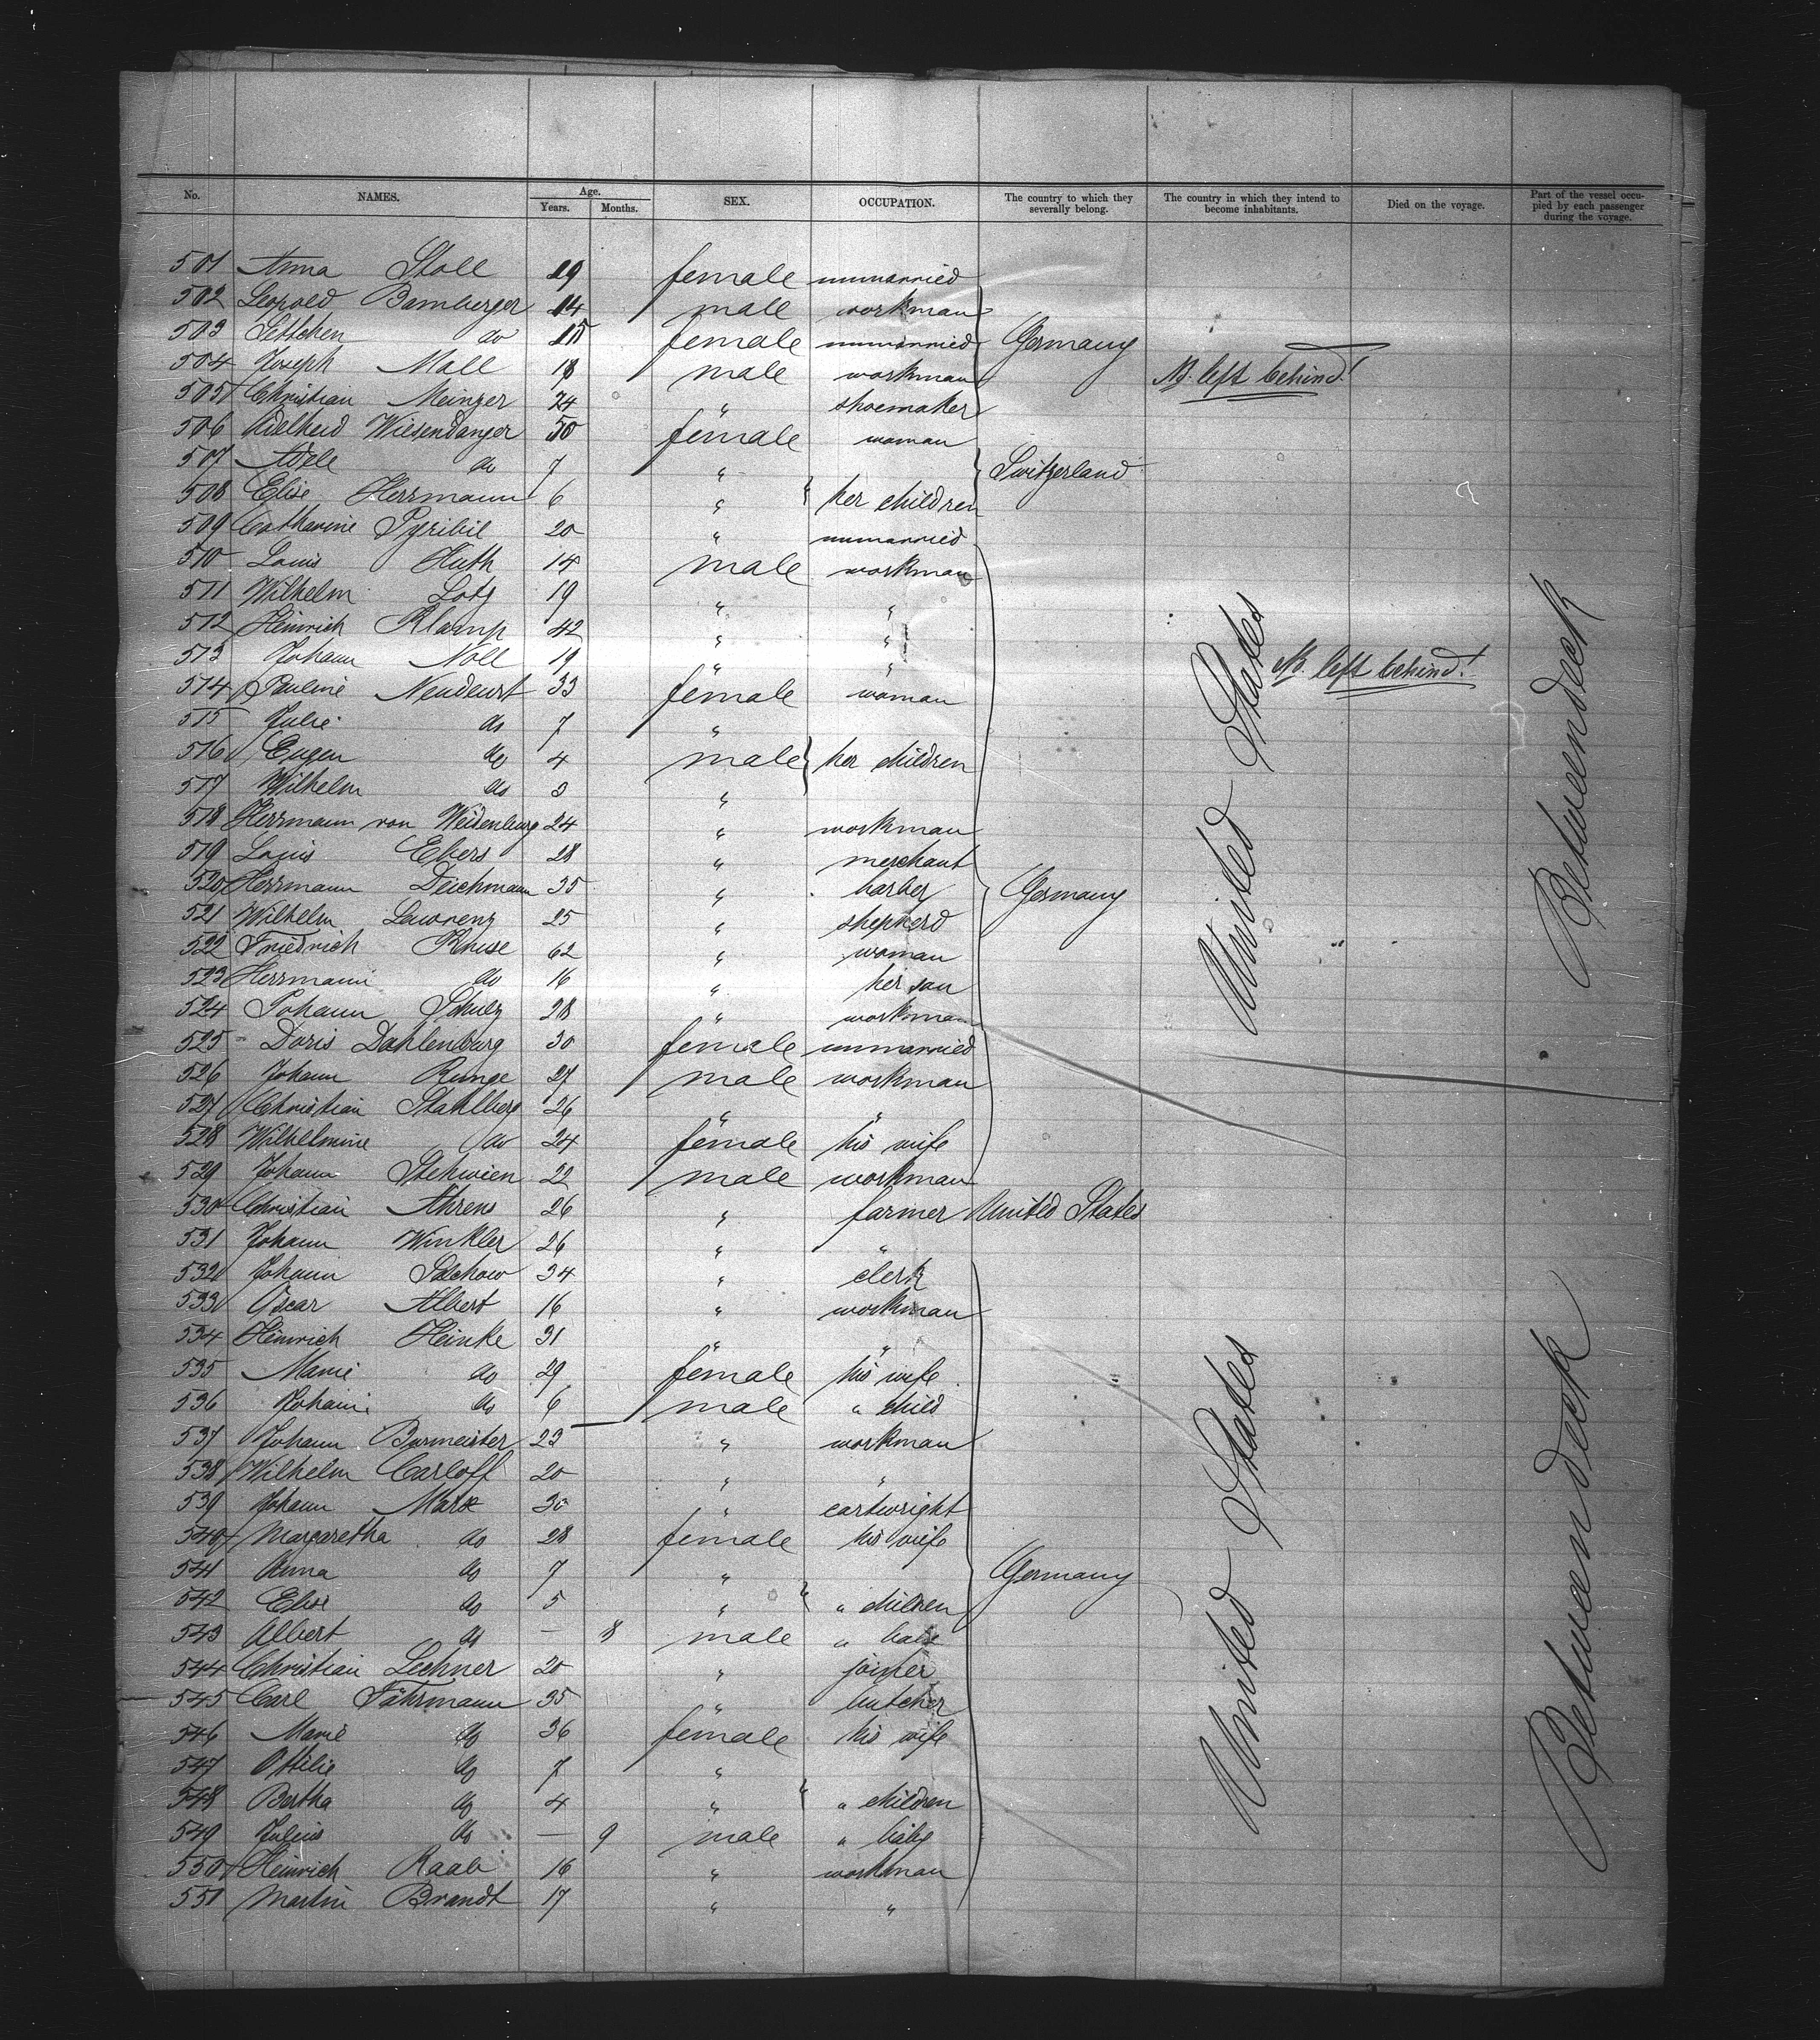 No. NAMES. Age. Years. Months. SEX. OCCUPATION. The country to which they severally belong. The country in which they intend to become inhabitants. Died on the voyage. Part of the vessel occupied by each passenger during the voyage.
501 Anna Stoll 19 female unmarried
502 Leopold Bamberger 14 male workman
503 Settchen do 15 female unmarried Germany
504 Joseph Mall 18 male workman NB. left behind!
505 Christian Meinzer 24 " shoemaker
506 Adelheid Wiesendanger 50 female woman
507 Adele do 7 " Switzerland
508 Elise Herrmann 6 " her children
509 Catharine Pyribil 20 " unmarried
510 Louis Huth 14 male workman
511 Wilhelm Lotz 19 " "
512 Heinrich Klamp 42 " "
513 Johann Noll 19 " " NB. left behind!
514 Pauline 33 female woman
515 Julie do 7 "
516 Eugen do 4 male her children
517 Wilhelm do 3 "
518 Herrmann von Weidenburg 24 " workman
519 Louis Ebers 28 " merchant
520 Herrmann Deichmann 35 " barber Germany
521 Wilhelm Lawrenz 25 " shepherd
522 Friedrich Kruse 62 " woman
523 Herrmann do 16 " her son
524 Johann Schulz 28 " workman
525 Doris Dahlenburg 30 female unmarried
526 Johann Runge 27 male workman
527 Christian Stahlberg 26 " "
528 Wilhelmine do 24 female his wife
529 Johann Stehwien 22 male workman
530 Christian Ahrens 26 " farmer United States
531 Johann Winkler 26 " "
532 Johann Salchow 34 " clerk
533 Oscar Albert 16 " workman
534 Heinrich Heinke 31 " "
535 Marie do 29 female his wife
536 Johann do 6 male " child
537 Johann Burmeister 23 " workman
538 Wilhelm Carloff 20 " "
539 Johann Marx 30 " cartwright
540 Margaretha do 28 female his wife
541 Anna do 7 " Germany
542 Elise do 5 " " children
543 Albert do — 8 male " babe
544 Christian Lechner 20 " joiner
545 Carl Fährmann 35 " butcher
546 Marie do 36 female his wife
547 Ottilie do 7 "
548 Bertha do 4 " " children
549 Julius do — 9 male " baby
550 Heinrich Raab 16 " workman
551 Martin Brandt 17 " "
United States
Betweendeck
United States
Betweendeck